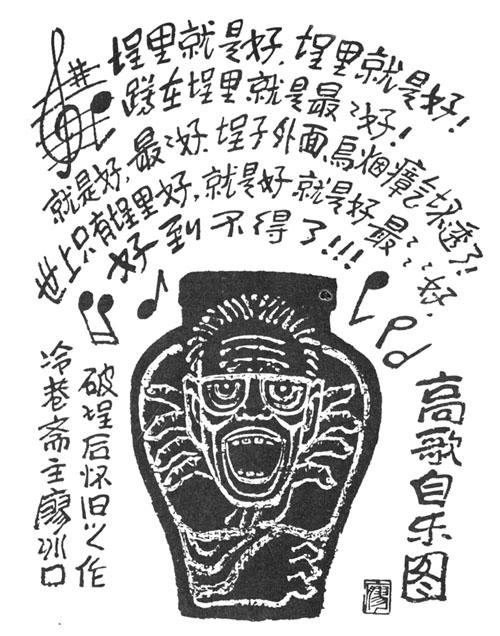 埕里就是好,埕里就是好!
蹲在埕里就是最〻好!
就是好,最〻好.埕子外面,烏烟瘴气坏透了!
世上只有埕里好,就是好就是好最〻〻好.
好到不得了!!!
高歌自乐图
破埕后怀旧之作
冷巷斋主廖冰口
廖